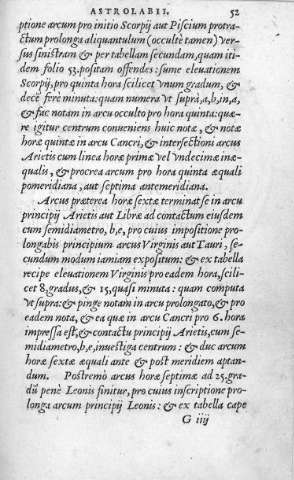 ASTROLABII. 52
ptione arcum pro initio Scorpij aut Piscium protra-
ctum prolonga aliquantulum (occultè tamen) ver-
sus sinistram & per tabellam secundam, quam iti-
dem folio 53. positam offendes: sume eleuationem
Scorpij, pro quinta hora scilicet vnum gradum, &
decē ferè minuta: quam numera vt suprà, a, b, in, a,
& fac notam in arcu occulto pro hora quinta: quæ-
re igitur centrum conueniens huic notæ, & notæ
horæ quintæ in arcu Cancri, & intersectioni arcus
Arietis cum linea horæ primæ vel vndecimæ inæ-
qualis, & procrea arcum pro hora quinta æquali
pomeridiana, aut septima antemeridiana.
Arcus præterea horæ sextæ terminatse in arcu
principij Arietis aut Libræ ad contactum eiusdem
cum semidiametro, b, e, pro cuius impositione pro-
longabis principium arcus Virginis aut Tauri, se-
cundum modum iamiam expositum: & ex tabella
recipe eleuationem Virginis pro eadem hora, scili-
cet 8. gradus, & 15, quasi minuta: quam computa
vt supra: & pinge notam in arcu prolongato, & pro
eadem nota, & ea quæ in arcu Cancri pro 6. hora
impressa est, & contactu principij Arietis, cum se-
midiametro, b, e, inuestiga centrum: & duc arcum
horæ sextæ æquali ante & post meridiem aptan-
dum. Postremò arcus horæ septimæ ad 25. gra-
dū penè Leonis finitur, pro cuius inscriptione pro-
longa arcum principij Leonis: & ex tabella cape
G iiij